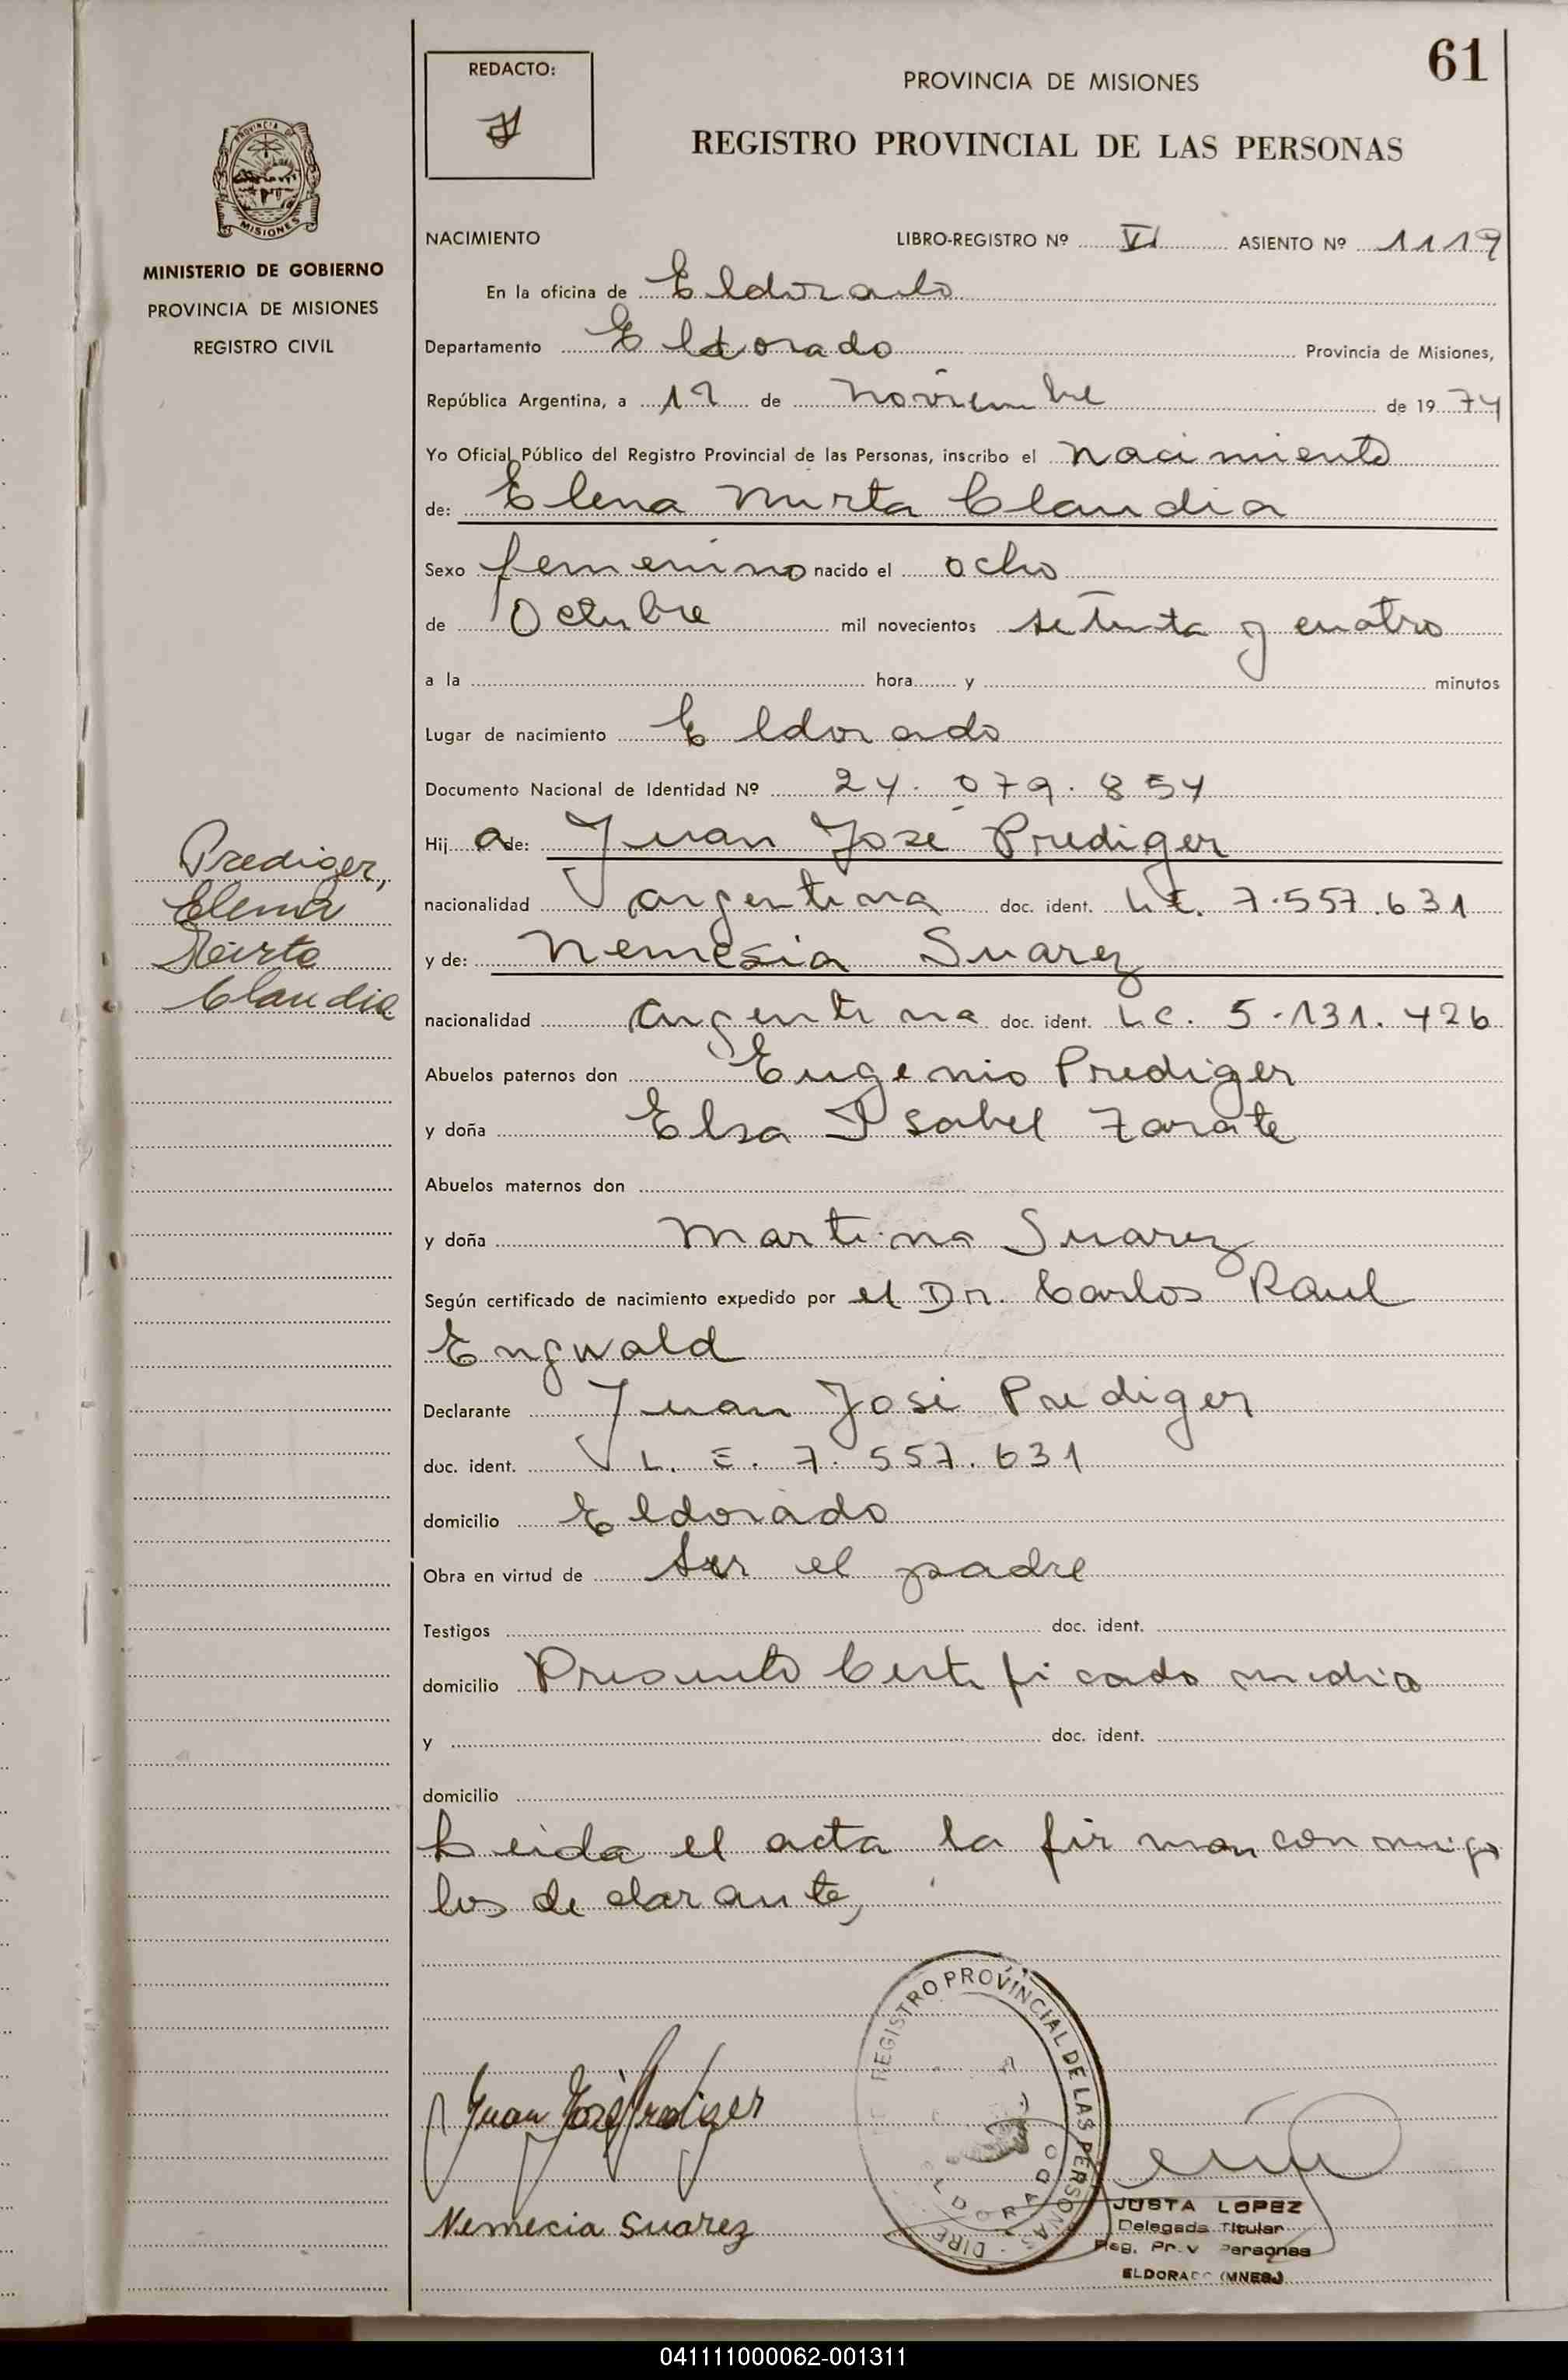 61
REDACTO:
PROVINCIA DE MISIONES
REGISTRO PROVINCIAL DE LAS PERSONAS
PROVINCIA DE
MISIONES
MINISTERIO DE GOBIERNO
PROVINCIA DE MISIONES
REGISTRO CIVIL
NACIMIENTO LIBRO-REGISTRO Nº VI ASIENTO Nº 1119
En la oficina de Eldorado
Departamento Eldorado Provincia de Misiones,
República Argentina, a 12 de noviembre de 1974
Yo Oficial Público del Registro Provincial de las Personas, inscribo el nacimiento
de: Elena Mirta Claudia
Sexo femenino nacido el ocho
de Octubre mil novecientos setenta y cuatro
a la hora y minutos
Lugar de nacimiento Eldorado
Documento Nacional de Identidad Nº 24.079.854
Hij a de: Juan José Prediger
Prediger,
Elena
Mirta
Claudia
nacionalidad argentina doc. ident. L.E. 7.557.631
y de: Nemesia Suarez
nacionalidad argentina doc. ident. L.C. 5.131.426
Abuelos paternos don Eugenio Prediger
y doña Elsa Isabel Zarate
Abuelos maternos don
y doña Martina Suarez
Según certificado de nacimiento expedido por el Dr. Carlos Raul
Engwald
Declarante Juan José Prediger
doc. ident. L.E. 7.557.631
domicilio Eldorado
Obra en virtud de ser el padre
Testigos doc. ident.
domicilio Presento Certificado medico
y doc. ident.
domicilio
Leida el acta la firman conmigo
los declarante,
REGISTRO PROVINCIAL DE LAS PERSONAS - DIRE
ELDORADO
Juan José Prediger
Nemecia Suarez
JUSTA LOPEZ
Delegada Titular
Reg. Prov Personas
ELDORADO (MNES.)
041111000062-001311